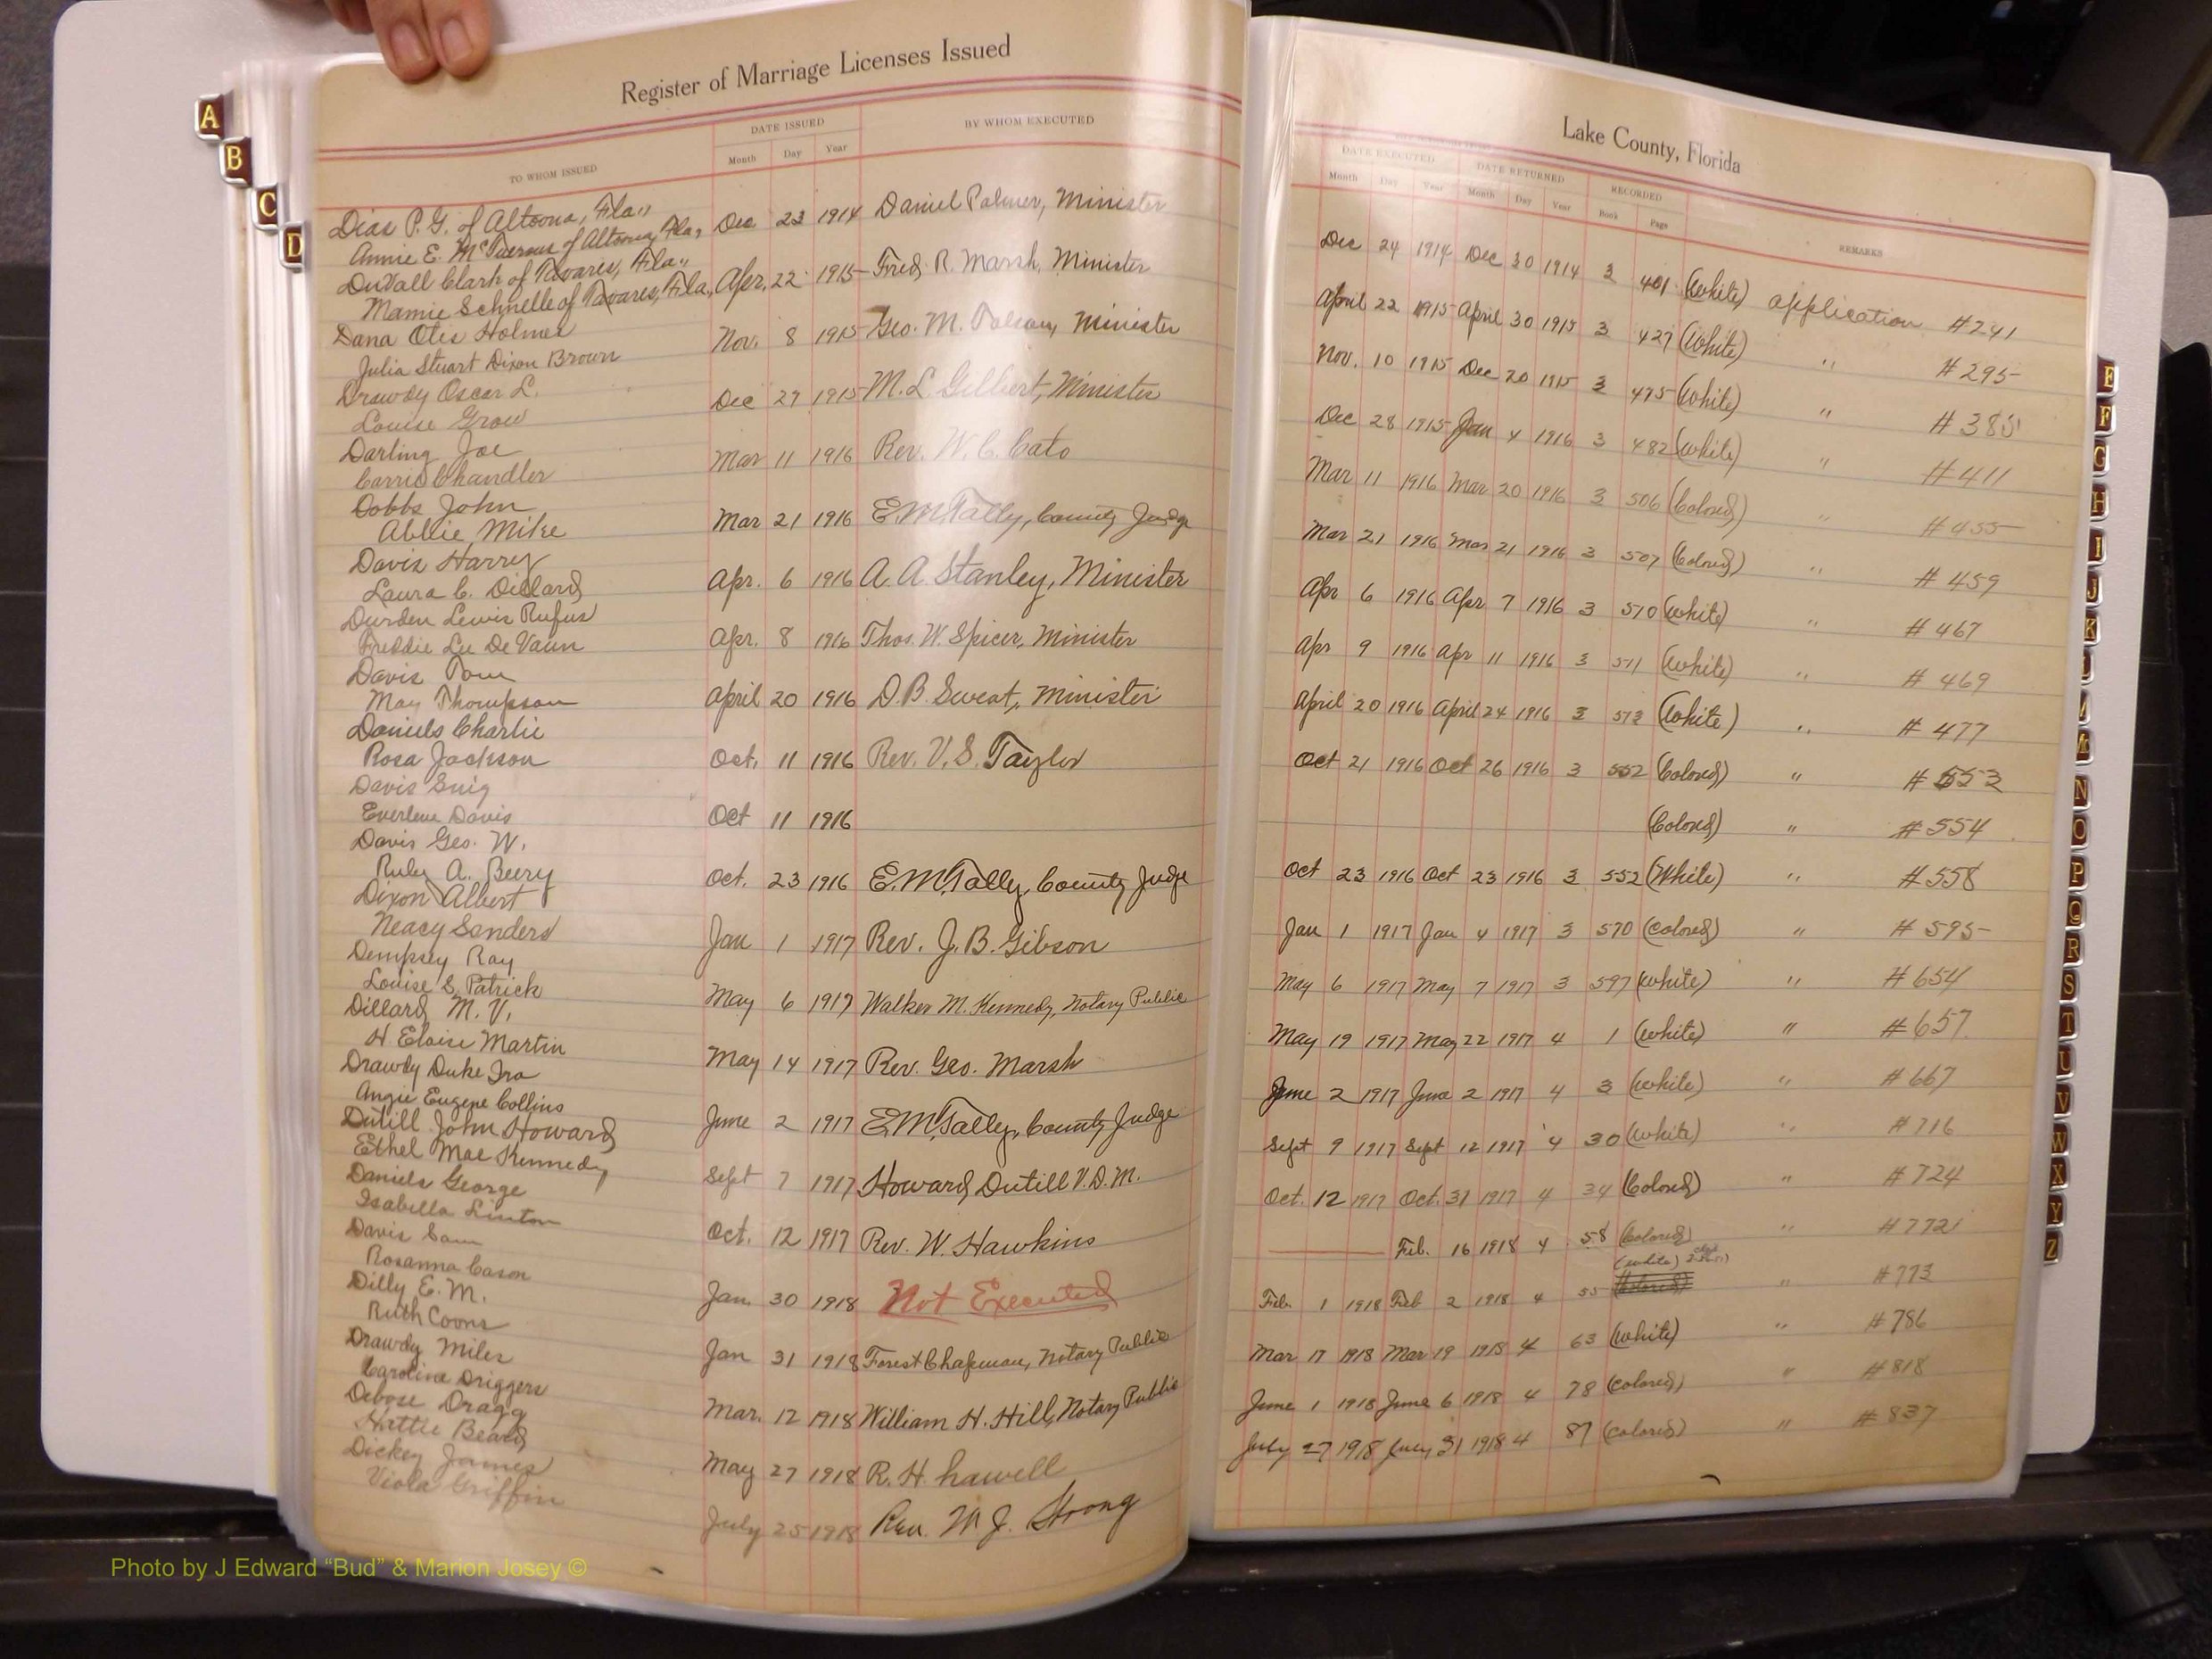 Register of Marriage Licenses Issued
TO WHOM ISSUED DATE ISSUED BY WHOM EXECUTED
Month Day Year
Dias P. G. of Altoona, Fla,,
Annie E. of Altoona, Fla, Dec 23 1914 Daniel Palmer, Minister
DuVall Clark of Tavares, Fla,,
Mamie Schnelle of Tavares, Fla., Apr. 22 1915 Fred, R. Marsh, Minister
Dana Otis Holmes
Julia Stuart Dixon Brown Nov. 8 1915 Geo. M. Minister
Drawdy Oscar L.
Louise Grow Dec 27 1915 M. L. Gilbert, Minister
Darling Joe
Carrie Chandler Mar 11 1916 Rev. W. C. Cato
Dobbs John
Abbie Mike Mar 21 1916 E.M. Tally, County Judge
Davis Harrey
Laura C. Dillard Apr. 6 1916 A. A. Stanley, Minister
Durden Lewis Rufus
Freddie Lu De Vaun Apr. 8 1916 Thos. W. Spicer, Minister
Davis Tom
May Thompson April 20 1916 D. B. Sweat, Minister
Daniels Charlie
Rosa Jackson Oct. 11 1916 Rev. V. S. Taylor
Davis Snig
Everlene Davis Oct 11 1916
Davis Geo. W.
Ruby A. Berry Oct. 23 1916 E.M. Tally, County Judge
Dixon Albert
Neacy Sanders Jan 1 1917 Rev. J. B. Gibson
Dempsey Ray
Louise S. Patrick May 6 1917 Walker M. Kennedy, Notary Public
Dillard M. V.
H. Eloise Martin May 14 1917 Rev. Geo. Marsh
Drawdy Duke Ira
Angie Eugene Collins June 2 1917 E.M. Tally, County Judge
Dutill John Howard
Ethel Mae Kennedy Sept 7 1917 Howard Dutill V.D.M.
Daniels George
Isabella Linton Oct. 12 1917 Rev. W. Hawkins
Davis Sam
Rosanna Cason Jan. 30 1918 Not Executed
Dilly E. M.
Ruth Coons Jan 31 1918 Forest Chapman, Notary Public
Drawdy Miles
Caroline Driggers Mar. 12 1918 William H. Hill, Notary Public
Debose Dragg
Hattie Beard May 27 1918 R. H.
Dickey James
Viola Griffin July 25 1918 Rev. M. J. Strong
Lake County, Florida
DATE EXECUTED DATE RETURNED RECORDED REMARKS
Month Day Year Month Day Year Book Page
Dec 24 1914 Dec 30 1914 3 401 (White) application #241
April 22 1915 April 30 1915 3 427 (White) " #295
Nov. 10 1915 Dec 20 1915 3 475 (White) " #385
Dec 28 1915 Jan 4 1916 3 482 (White) " #411
Mar 11 1916 Mar 20 1916 3 506 (Colored) " #455
Mar 21 1916 Mar 21 1916 3 507 (Colored) " #459
Apr 6 1916 Apr 7 1916 3 510 (White) " #467
Apr 9 1916 Apr 11 1916 3 511 (White) " #469
April 20 1916 April 24 1916 3 513 (White) " #477
Oct 21 1916 Oct 26 1916 3 552 (Colored) " #553
(Colored) " #554
Oct 23 1916 Oct 23 1916 3 552 (White) " #558
Jan 1 1917 Jan 4 1917 3 570 (Colored) " #595
May 6 1917 May 7 1917 3 597 (White) " #654
May 19 1917 May 22 1917 4 1 (White) " #657
June 2 1917 June 2 1917 4 3 (White) " #667
Sept 9 1917 Sept 12 1917 4 30 (White) " #716
Oct. 12 1917 Oct. 31 1917 4 34 (Colored) " #724
Feb. 16 1918 4 58 (Colored) " #772
(white)
Feb. 1 1918 Feb 2 1918 4 55 (Colored) " #773
Mar 17 1918 Mar 19 1918 4 63 (White) " #786
June 1 1918 June 6 1918 4 78 (Colored) " #818
July 27 1918 July 31 1918 4 87 (Colored) " #837
A
B
C
D
E
F
G
H
I
J
K
M
N
O
P
Q
R
S
T
U
V
W
X
Y
Z
Photo by J Edward "Bud" & Marion Josey ©